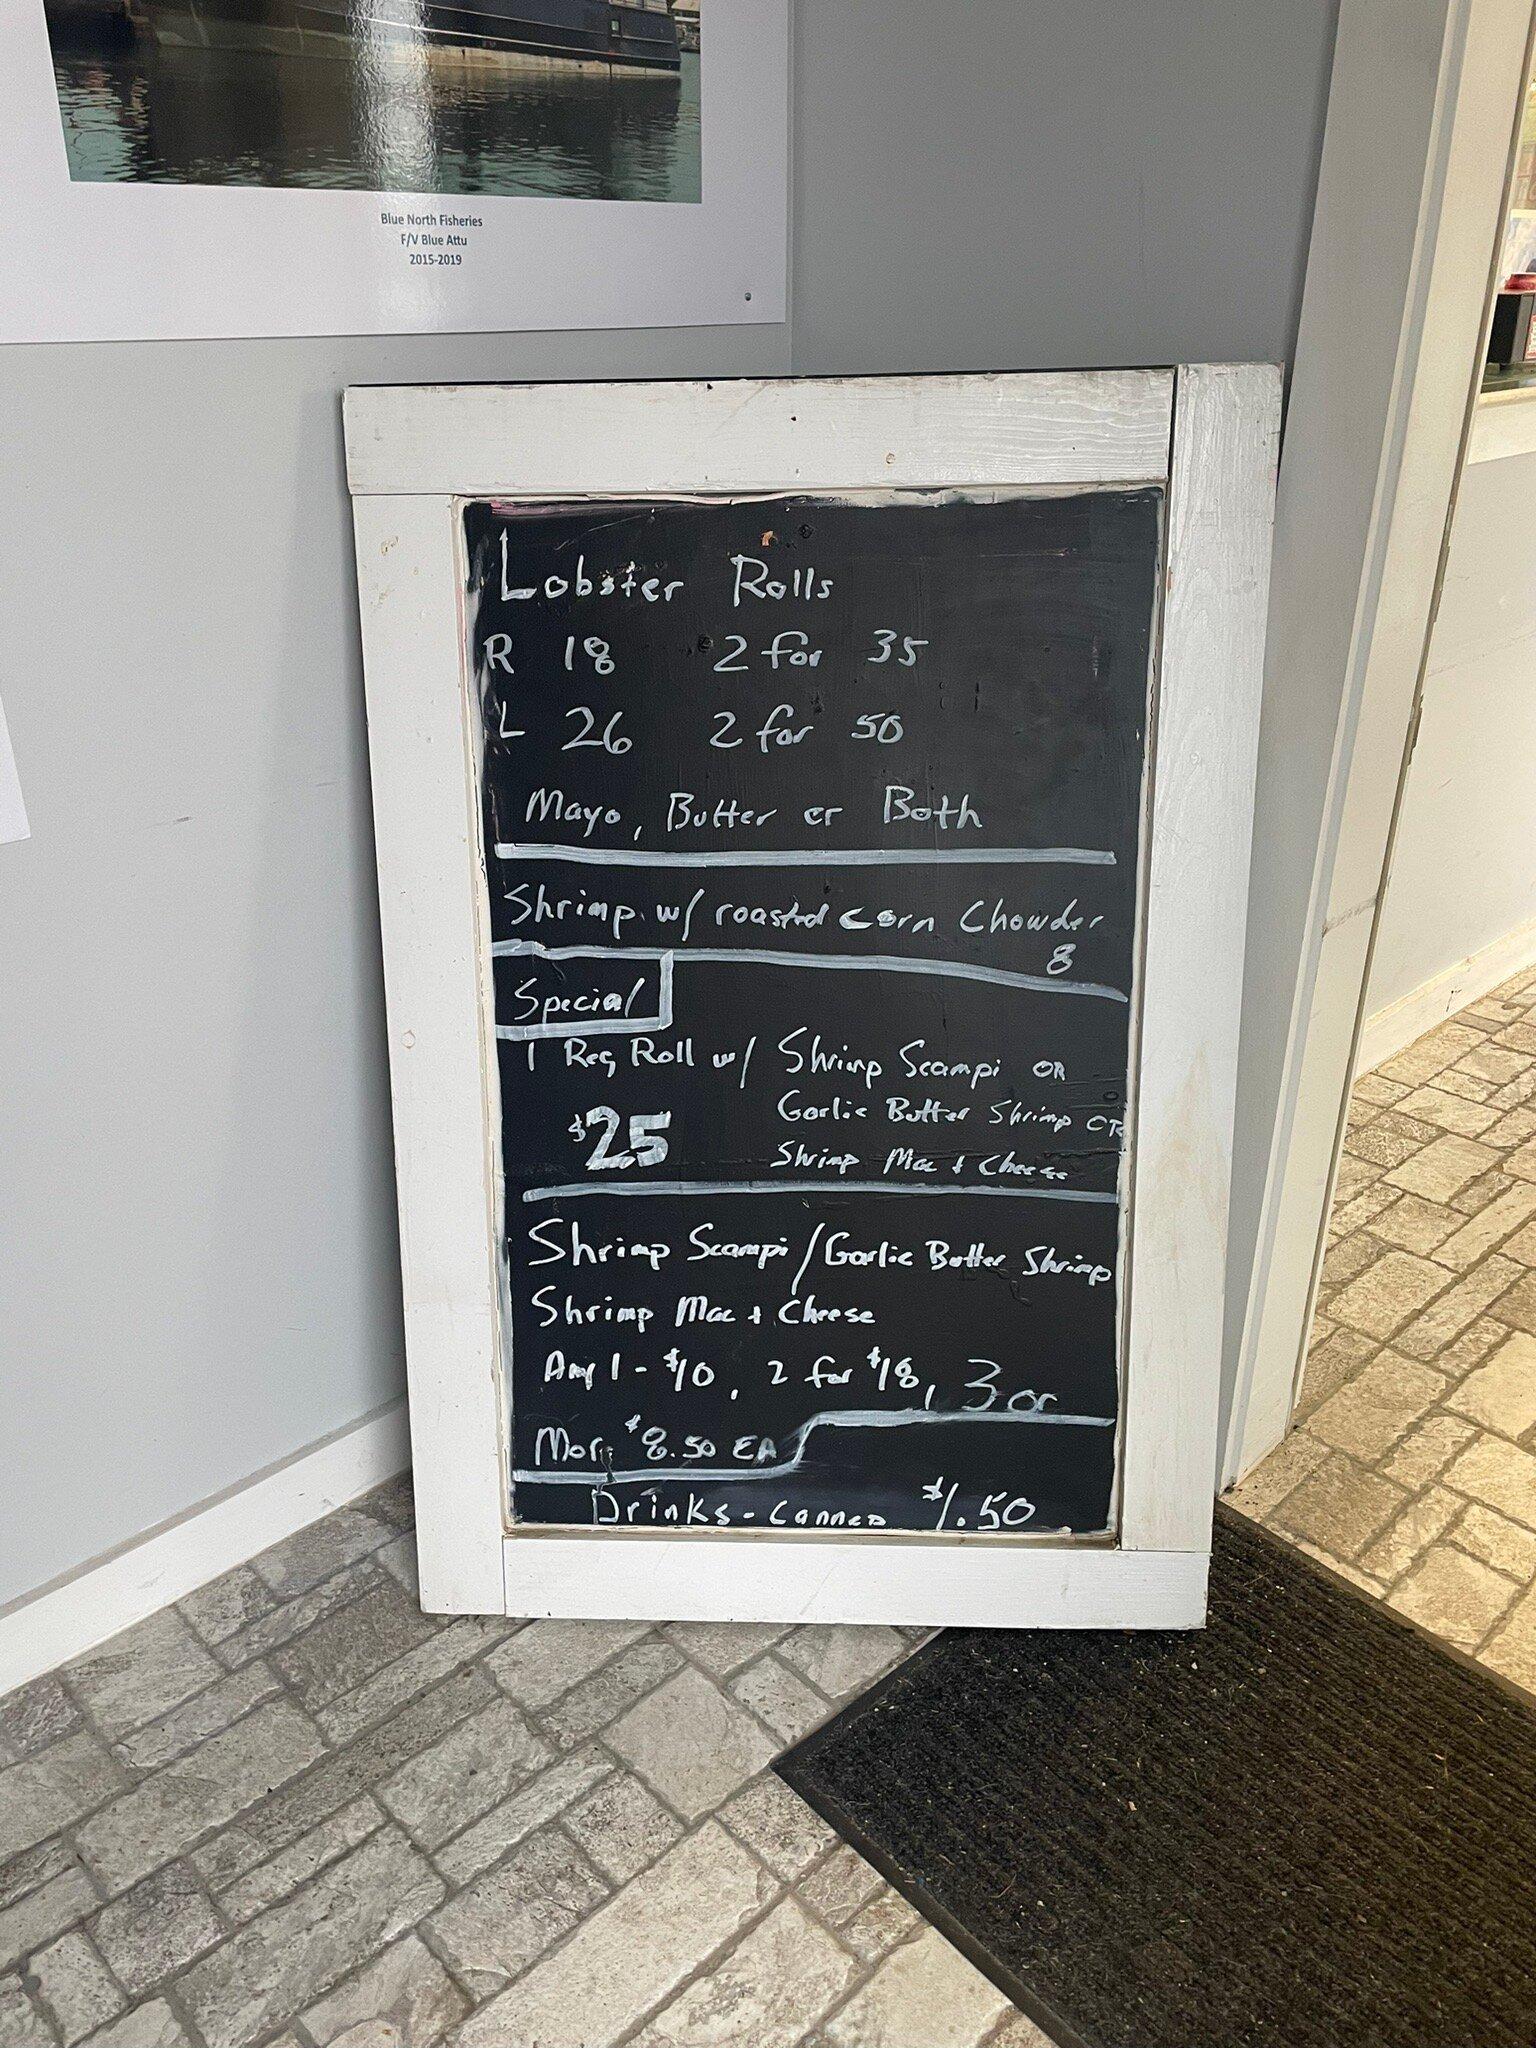 Blue North Fisheries
F/V Blue Attu
2015-2019
Lobster Rolls
R 18 2 for 35
L 26 2 for 50
Mayo, Butter or Both
Shrimp w/ roasted corn Chowder
8
Special
1 Reg Roll w/ Shrimp Scampi OR
Garlic Butter Shrimp OR
$25
Shrimp Mac + Cheese
Shrimp Scampi/Garlic Butter Shrimp
Shrimp Mac + Cheese
Any 1 - $10, 2 for $18, 3 or
More $8.50 EA
Drinks - Canned $1.50